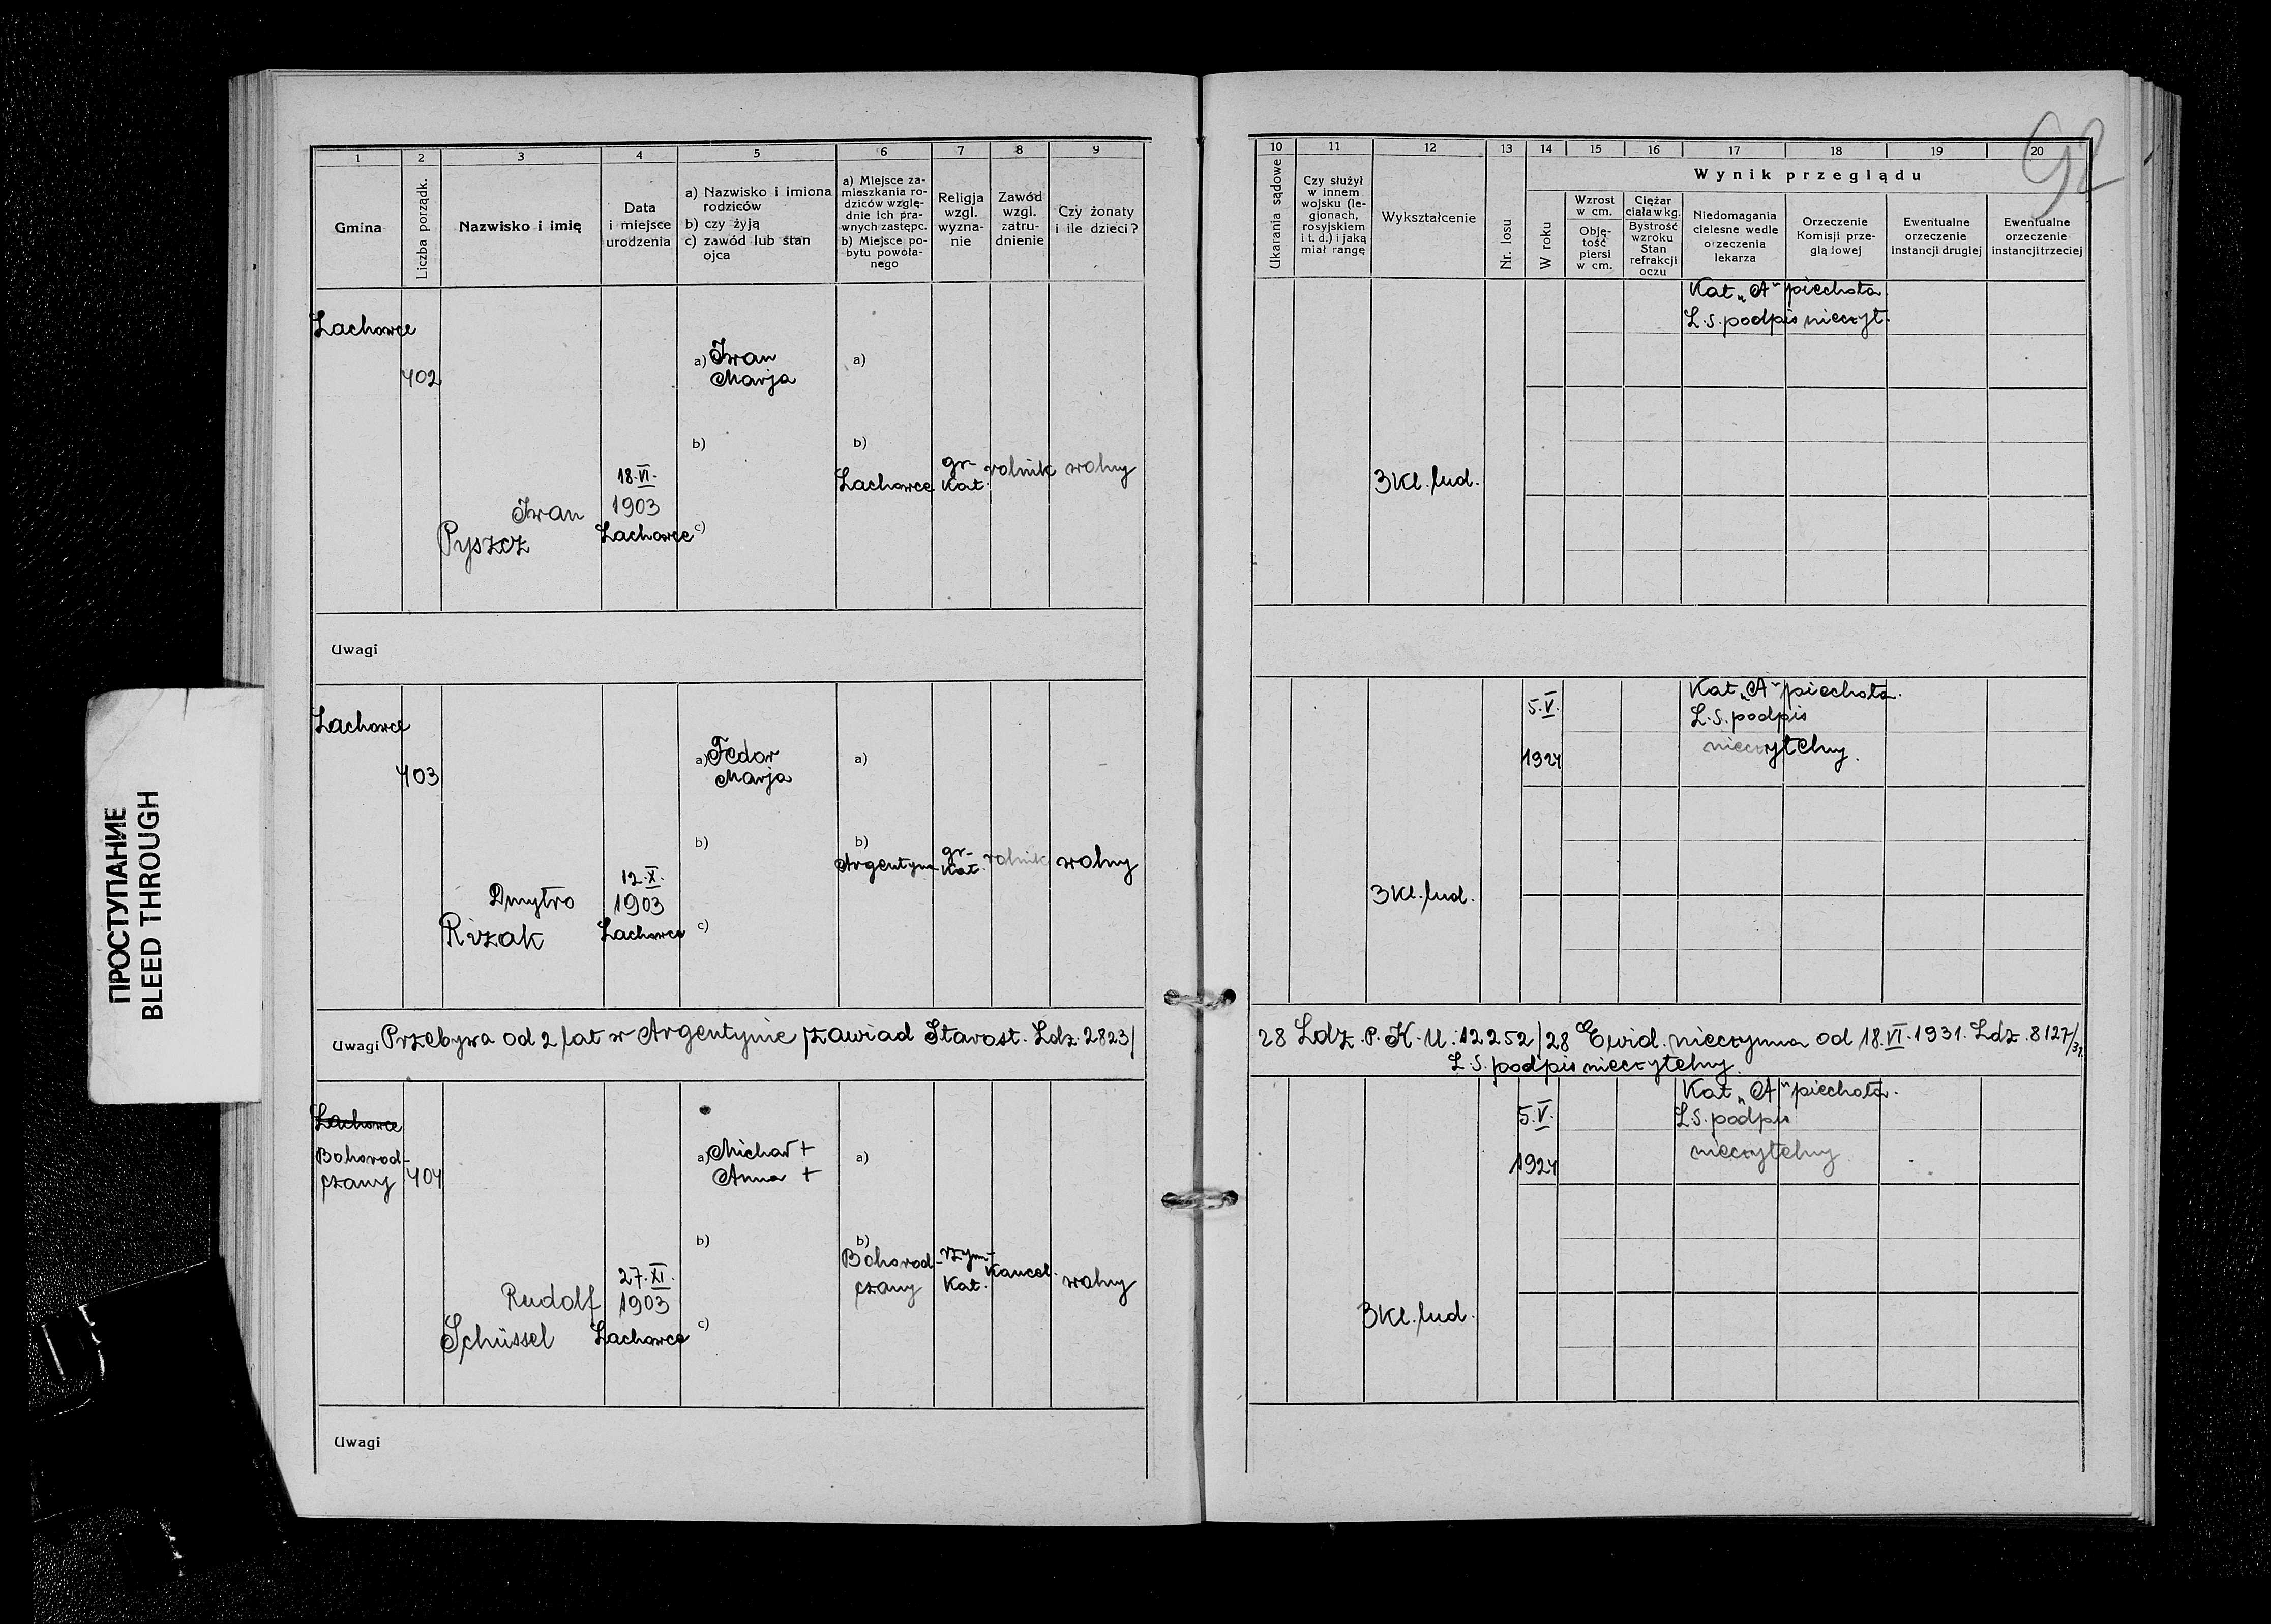 92
1 2 3 4 5 6 7 8 9
Gmina
Liczba porządk.
Nazwisko i imię
Data
i miejsce
urodzenia
a) Nazwisko i imiona
rodziców
b) czy żyją
c) zawód lub stan
ojca
a) Miejsce za-
mieszkania ro-
dziców wzglę-
dnie ich pra-
wnych zastępc.
b) Miejsce po-
bytu powoła-
nego
Religja
wzgl.
wyzna-
nie
Zawód
wzgl.
zatru-
dnienie
Czy żonaty
i ile dzieci?
10 11 12 13 14 15 16 17 18 19 20
Ukarania sądowe
Czy służył
w innem
wojsku (le-
gjonach,
rosyjskiem
i t. d.) i jaką
miał rangę
Wykształcenie
Nr. losu
Wynik przeglądu
W roku
Wzrost
w cm.
Obję-
tość
piersi
w cm.
Ciężar
ciała w kg.
Bystrość
wzroku
Stan
refrakcji
oczu
Niedomagania
cielesne wedle
orzeczenia
lekarza
Orzeczenie
Komisji prze-
glądowej
Ewentualne
orzeczenie
instancji drugiej
Ewentualne
orzeczenie
instancji trzeciej
Lachowce
402
Iwan
Pyszcz
18.VI.
1903
Lachowce
a) Iwan
Marja
b)
c)
a)
b)
Lachowce
gr-
kat.
rolnik
wolny
3 kl. lud.
Kat „A" piechota.
L.S. podpis nieczyt.
Uwagi
Lachowce
403
Dmytro
Rizak
12.X.
1903
Lachowce
a) Fedor
Marja
b)
c)
a)
b)
Argentyna
gr-
kat.
rolnik
wolny
3 kl. lud.
5.V.
1924
Kat „A" piechota.
L.S. podpis
nieczytelny.
Uwagi Przebywa od 2 lat w Argentynie /zawiad Starost. Ldz. 2823/
28 Ldz. P. K. U. 12252/28 Ewid. nieczynna od 18.VI.1931. Ldz. 8127/31.
L.S. podpis nieczytelny.
Lachowce
Bohorod-
czany
404
Rudolf
Schüssel
27.XI.
1903
Lachowce
a) Michał +
Anna +
b)
c)
a)
b)
Bohorod-
czany
rzym-
kat.
kancel.
wolny
3 kl. lud.
5.V.
1924
Kat „A" piechota.
L.S. podpis
nieczytelny
Uwagi
ПРОСТУПАНИЕ
BLEED THROUGH